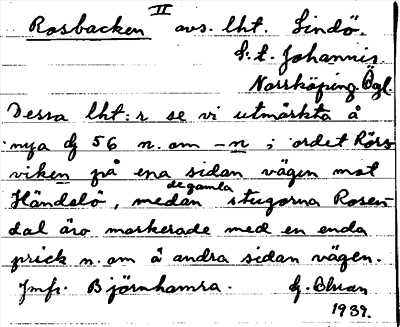 II
Rosbacken avs. lht. Lindö.
S:t. Johannis.
Norrköping. Ögl.
Dessa lht:r se vi utmärkta å
nya gj 56 n. om -n i ordet Rörs
viken på ena sidan vägen mot
Händelö, medan de gamla stugorna Rosen-
dal äro markerade med en enda
prick n. om å andra sidan vägen.
Jmfr. Björnhamra.
1939.